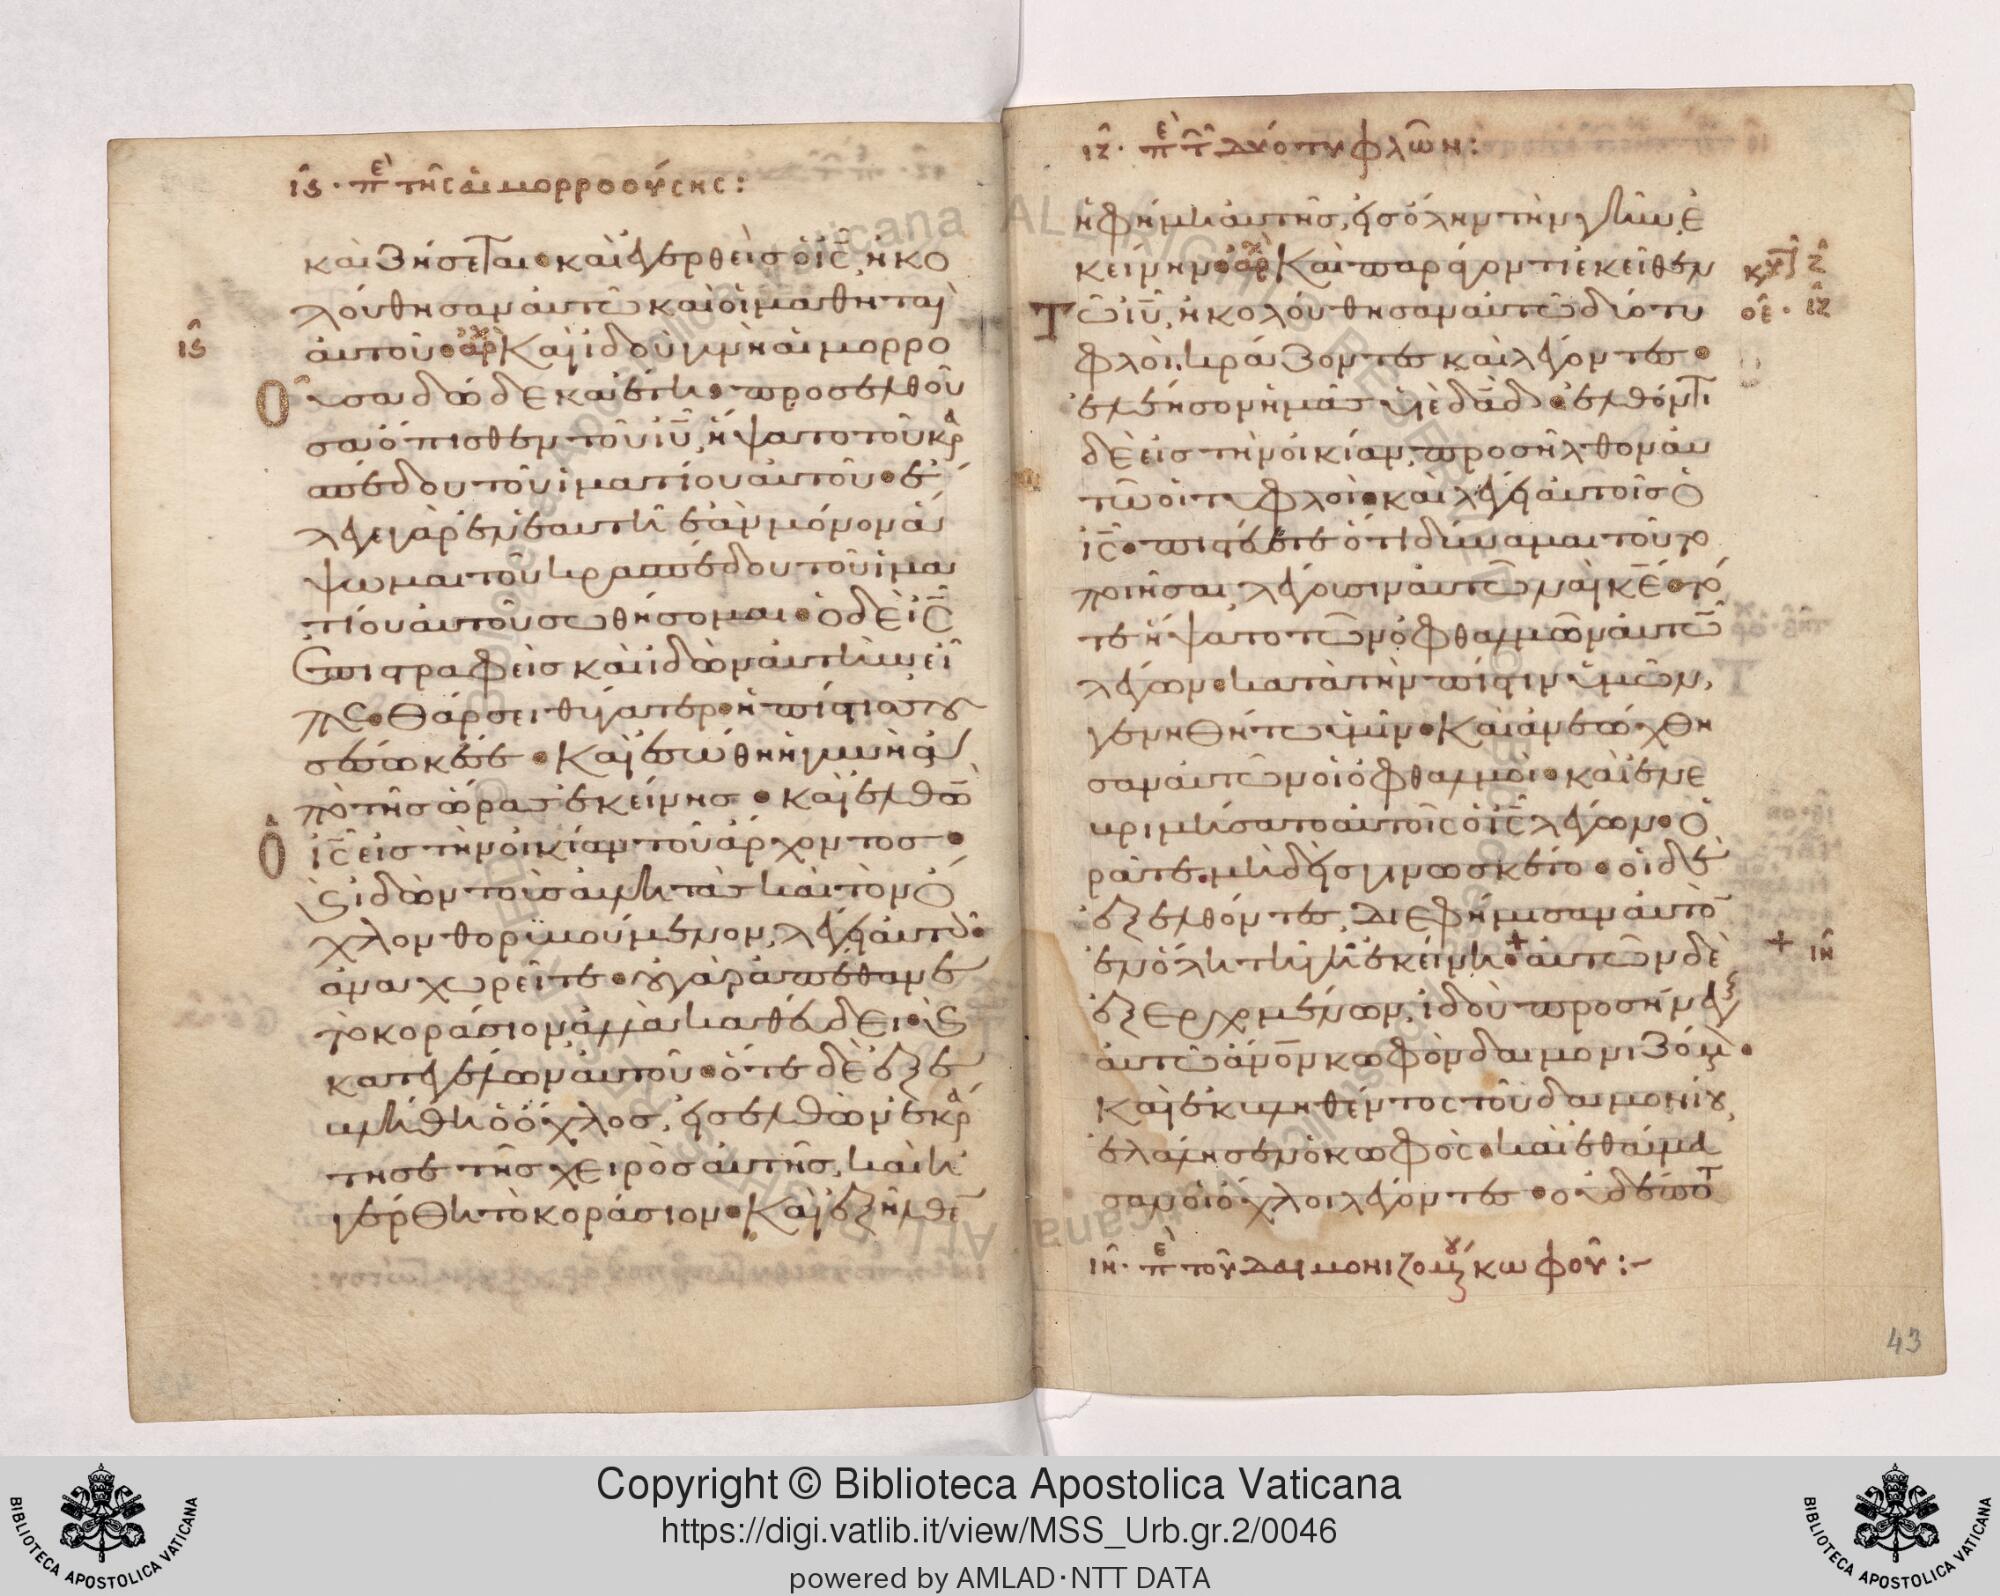 ιϛ̑· πὲ τῆς αἱμορροούσης:
καὶ ζήσεται· καὶ ἐγερθεὶς ὁ ις̅, ἠκο
λούθησαν αὐτῶ καὶ οἱ μαθηταὶ
ιϛ̑
αὐτοῦ· αρχ Καὶ ἰδοὺ γυνὴ αἱμορρο
οῦσα δώδεκα ἔτη· προσελθοῦ
σα ὄπισθεν τοῦ ιυ̅, ἥψατο τοῦ κρα
σπέδου τοῦ ἱματίου αὐτοῦ· ἔ
λεγε γὰρ ἐν ἑαυτῆ ἐὰν μόνον ἅ
ψωμαι τοῦ κρασπέδου τοῦ ἱμα
τίου αὐτοῦ σωθήσομαι· ὁ δὲ ις̅
ἐπιστραφεὶς καὶ ἰδὼν αὐτὴν, εἶ
πε· Θάρσει θύγατερ· ἡ πίστις σου
σέσωκέ σε· Καὶ ἐσώθη ἡ γυνὴ ἀ
πὸ τῆς ὥρας ἐκείνης· καὶ ἐλθὼν
ὁ ις̅ εἰς τὴν οἰκίαν τοῦ ἄρχοντος·
Καὶ ἰδὼν τοὺς αὐλητὰς καὶ τὸν ὄ
χλον θορυβούμενον, λέγει αὐτοῖς·
ἀναχωρεῖτε· οὐ γὰρ ἀπέθανε
τὸ κοράσιον, ἀλλὰ καθεύδει· Καὶ
κατεγέλων αὐτοῦ· ὅτε δὲ ἐξε
βλήθη ὁ ὄχλος, εἰσελθὼν ἐκρά
τησε τῆς χειρὸς αὐτῆς, καὶ ἠ
γέρθη τὸ κοράσιον· Καὶ ἐξῆλθεν
ιζ̑· πὲ τ̑ δύο τυφλῶν:
ἡ φήμη αὐτῆς, εἰς ὅλην τὴν γῆν ἐ
κείνην· αρχ Καὶ παράγοντι ἐκεῖθεν
κυ ζ̑
τῶ ιυ̅, ἠκολούθησαν αὐτῶ δύο τυ
οε̑· ιζ̑
φλοὶ, κράζοντες καὶ λέγοντες·
ἐλέησον ἡμᾶς υἱὲ δα̅δ· ἐλθόντι
δὲ εἰς τὴν οἰκίαν, προσῆλθον αὐ
τῶ οἱ τυφλοὶ· καὶ λέγει αὐτοῖς ὁ
ις̅· πιστεύετε ὅτι δύναμαι τοῦτο
ποιῆσαι, λέγουσιν αὐτῶ ναὶ κε̅· τό
τε ἥψατο τῶν ὀφθαλμῶν αὐτῶν
λέγων· κατὰ τὴν πίστιν ὑμῶν,
γενηθήτω ὑμῖν· Καὶ ἀνεώχθη
σαν αὐτῶν οἱ ὀφθαλμοὶ· καὶ ἐνε
βριμήσατο αὐτοῖς ὁ ις̅ λέγων· ὁ
ρᾶτε, μηδεὶς γινωσκέτω· οἱ δὲ
ἐξελθόντες, διεφήμισαν αὐτὸν
ἐν ὅλη τῆ γῆ ἐκείνη· + αὐτῶν δὲ
+ ιη̑
ἐξερχομένων, ἰδοὺ προσήνεγκαν
αὐτῶ ἄνον̅ κωφὸν δαιμονιζόμ·
καὶ ἐκβληθέντος τοῦ δαιμονίου,
ἐλάλησεν ὁ κωφὸς· καὶ ἐθαύμα
σαν οἱ ὄχλοι λέγοντες· οὐδέποτ
ιη̑· πὲ τοῦ δαιμονιζομου κωφοῦ:~
43
Copyright © Biblioteca Apostolica Vaticana
https://digi.vatlib.it/view/MSS_Urb.gr.2/0046
powered by AMLAD·NTT DATA
BIBLIOTECA APOSTOLICA VATICANA
BIBLIOTECA APOSTOLICA VATICANA